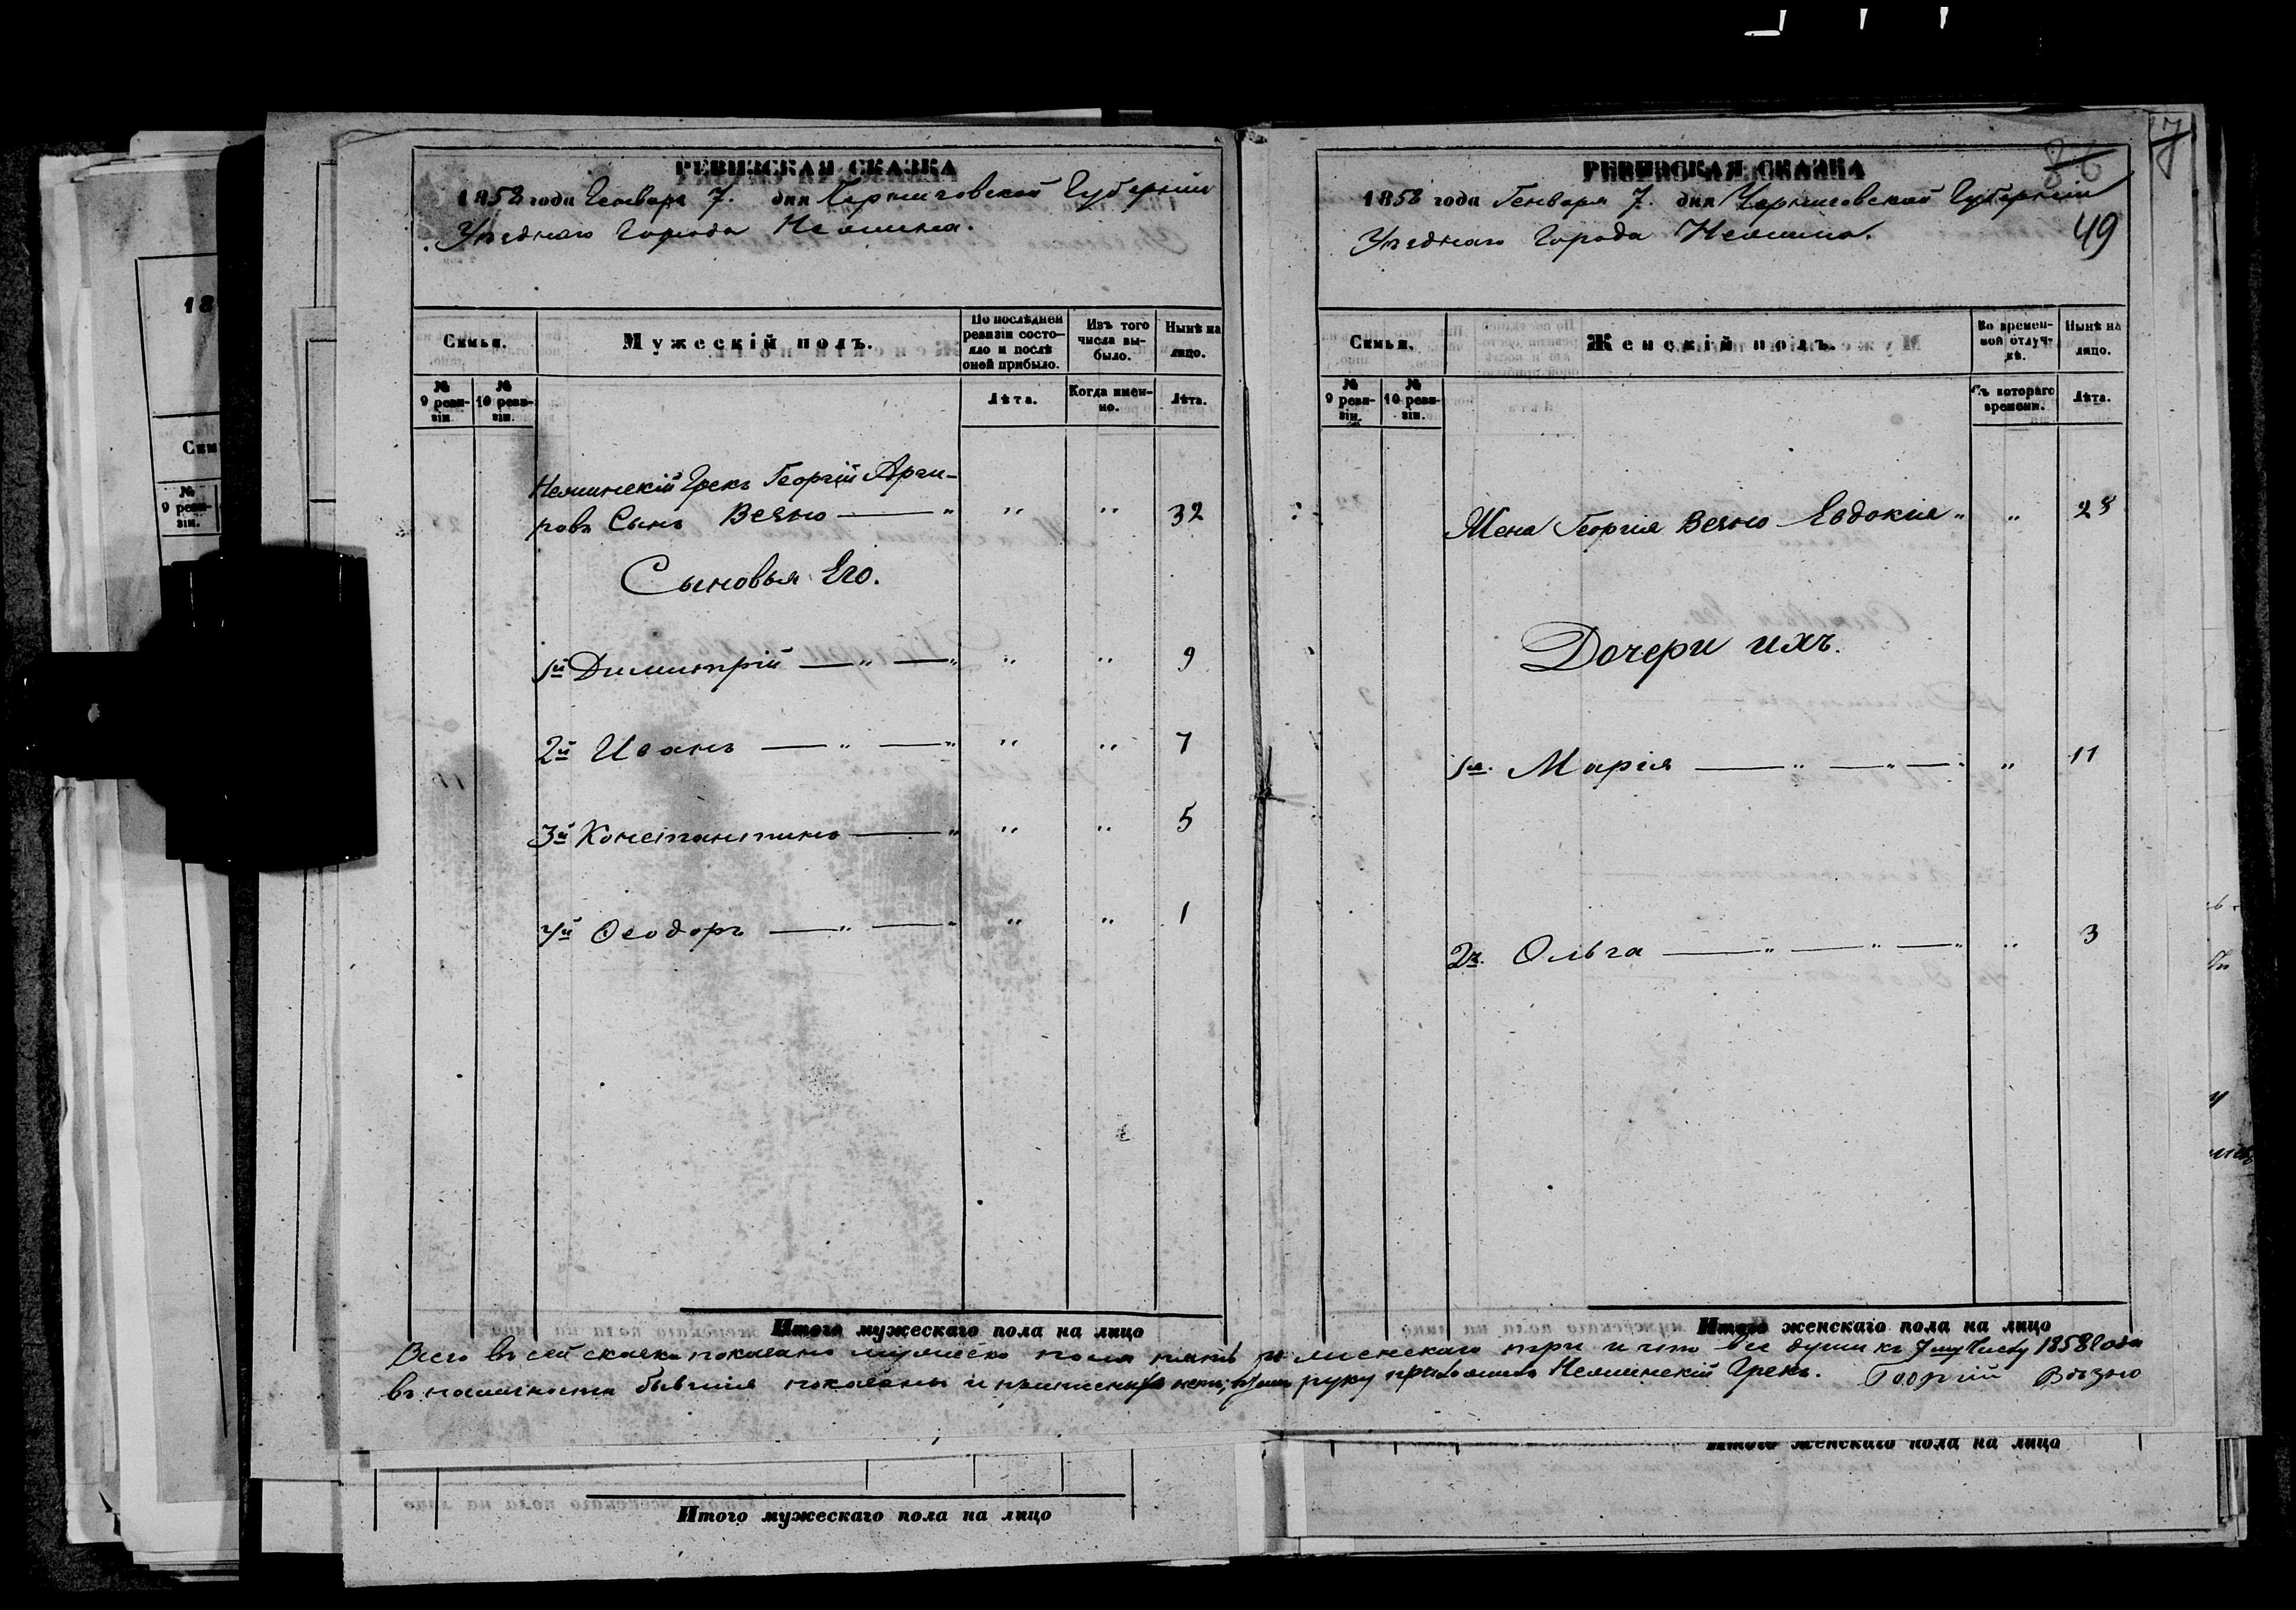 РЕВИЗСКАЯ СКАЗКА
1858 года Генваря 7. дня Черниговской Губерніи
Уезднаго Города Нежина.
Семьи.
Мужескій полъ.
По послѣдней ревизіи состояло и послѣ оной прибыло.
Изъ того числа выбыло.
Нынѣ на лицо.
№ 9 ревизіи.
№ 10 ревизіи.
Лѣта.
Когда именно.
Лѣта.
Нежинскій Грекъ Георгій Арги-
ровъ Сынъ Веязо — " " " 32
Сыновья Его.
1й Димитрій — " — " " " 9
2й Иванъ — " — " " " 7
3й Константинъ — " " " 5
4й Ѳеодоръ — " — " " " 1
Итого мужескаго пола на лицо
РЕВИЗСКАЯ СКАЗКА
36
17
1858 года Генваря 7. дня Черниговской Губерніи
Уезднаго Города Нежина.
49
Семьи.
Женскій полъ.
Во временной отлучкѣ.
Нынѣ на лицо.
№ 9 ревизіи.
№ 10 ревизіи.
Съ котораго времени.
Лѣта.
Жена Георгія Веязо Евдокия " " 28
Дочери ихъ.
1я. Марія — " — " — " " 11
2я. Ольга — " — " — " " 3
Итого женскаго пола на лицо
Всего въ сей сказке показано мужеско пола пять и женскаго три и что все души къ 7му Числу 1858 Года
въ наличности бывшія показаны и руку приложилъ Нежинскій Грекъ. Георгій Вѣязо
Итого мужескаго пола на лицо
Итого женскаго пола на лицо
18
№ 9 ревизіи.